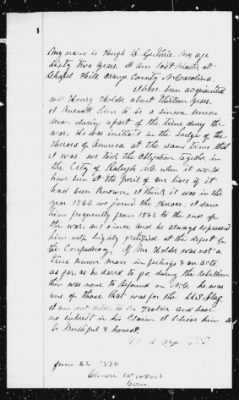 My name is Hugh B. Guthrie. My age
Sixty Five Years. I am Post Master at
Chapel Hill Orange County N Carolina.
I have been acquainted
with Henry Holder about thirteen years.
I knew him to be a Union
man during part of the time during the
war. He was initiated in the Lodge of the
Heroes of America at the same time that
I was. We took the obligation together in
the City of Raleigh N.C. when it would
have been at the peril of our lives if it
had been known. I think it was in the
year 1863 we joined the Heroes. I saw
him frequently from 1863 to the end of
the war and since and he always expressed
him self highly gratified at the defeat of
the Confederacy. If Mr Holder was not a
true Union man in feelings and in acts
as far as he dared to go, during the Rebellion
there was none to be found in N.C. he was
one of those that was for the U.S. Flag.
I am not akin to Mr Holder and have
no interest in his Claim. I believe him to
be truthful & honest.
June 22 1878